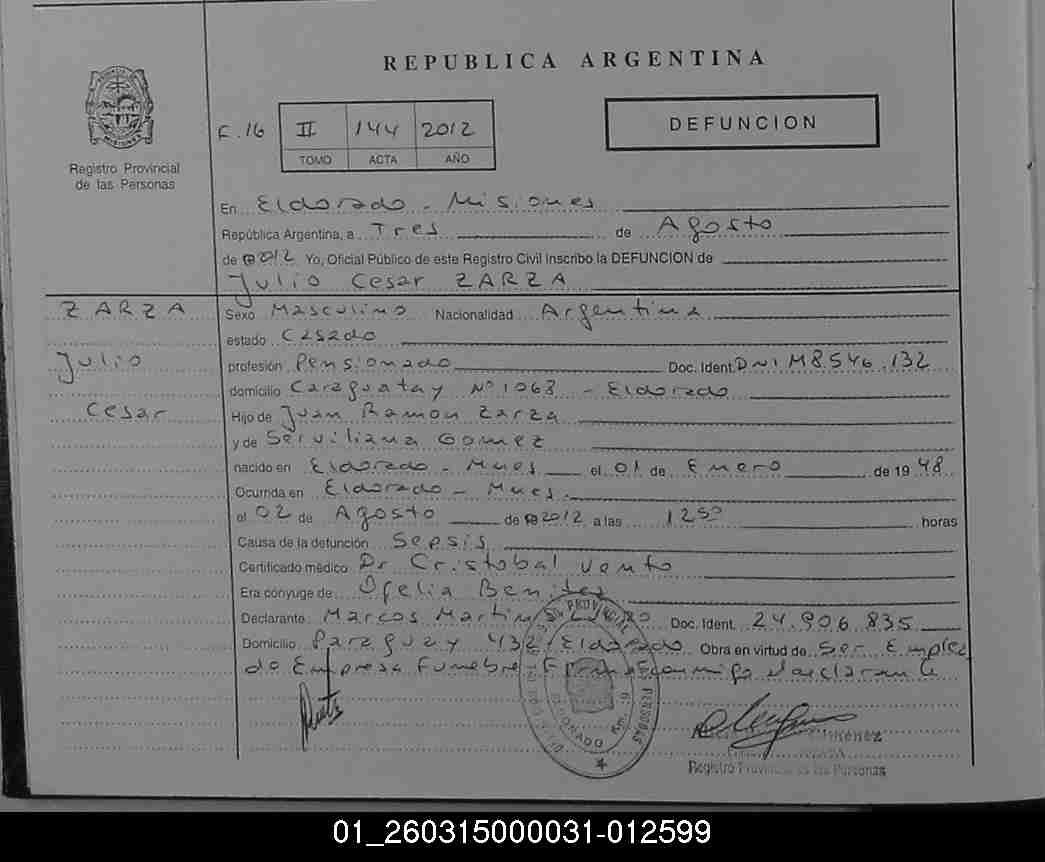 REPUBLICA ARGENTINA
F.16 II 144 2012
TOMO ACTA AÑO
DEFUNCION
Registro Provincial
de las Personas
En Eldorado - Misiones
República Argentina, a Tres de Agosto
de 2012 Yo, Oficial Público de este Registro Civil Inscribo la DEFUNCION de
Julio Cesar ZARZA
ZARZA
Julio
Cesar
Sexo Masculino Nacionalidad Argentina
estado Casado
profesión Pensionado Doc. Ident. DNI M8.546.132
domicilio Caraguatay Nº 1068 - Eldorado
Hijo de Juan Ramon Zarza
y de Serviliana Gomez
nacido en Eldorado - Mnes el 01 de Enero de 1948
Ocurrida en Eldorado - Mnes.
el 02 de Agosto de 2012 a las 12 50 horas
Causa de la defunción Sepsis
Certificado médico Dr Cristobal Vento
Era cónyuge de Ofelia Benitez
Declarante Marcos Martin Doc. Ident. 24.906.835
Domicilio Paraguay 432 - Eldorado Obra en virtud de Ser Emplea
do Empresa Funebre - Firma conmigo declarante
Registro Provincial de las Personas
01_260315000031-012599